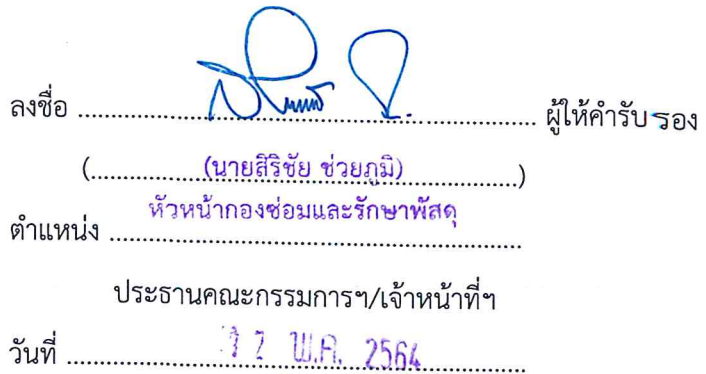 ลงชื่อ ................................................ ผู้ให้คำรับรอง
(.......(นายสิริชัย ช่วยภูมิ).......)
หัวหน้ากองซ่อมและรักษาพัสดุ
ตำแหน่ง ................................................
ประธานคณะกรรมการฯ/เจ้าหน้าที่ฯ
วันที่ ....... 2 พ.ค. 2564 .......